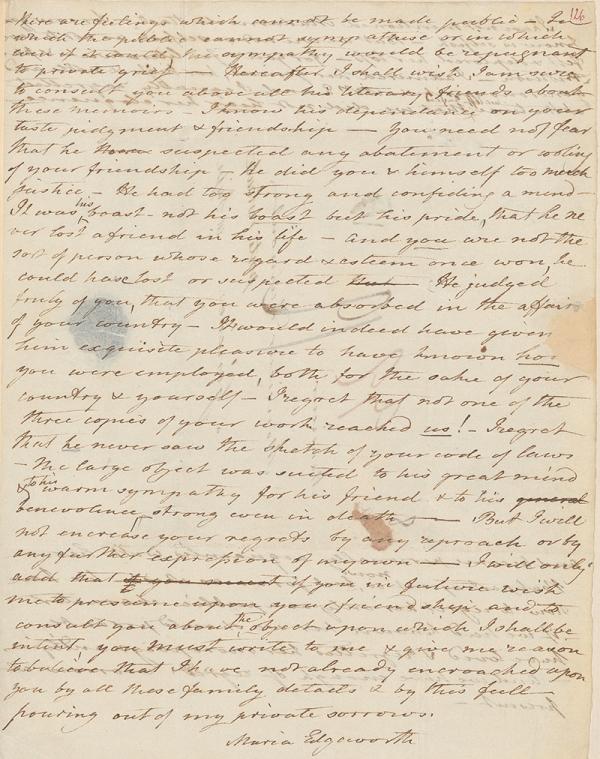 126
there are feelings which cannot be made public - In
which the public cannot sympathise or in which
even if it could the sympathy would be repugnant
to private grief - Hereafter I shall wish I am sure
to consult you above all his literary friends about
these memoirs - I know his dependance on your
taste judgment & friendship - You need not fear
that he suspected any abatement or cooling
of your friendship - he did you & himself too much
justice - He had too strong and confiding a mind -
It was his boast - not his boast but his pride, that he ne
ver lost a friend in his life - and you are not the
sort of person whose regard & esteem once won, he
could have lost or suspected He judged
truly of you, that you were absorbed in the affairs
of your country - It would indeed have given
him exquisite pleasure to have known how
you were employed, both for the sake of your
country & yourself - I regret that not one of the
three copies of your work reached us! - I regret
that he never saw the sketch of your code of laws
- the large object was suited to his great mind
& to his warm sympathy for his friend & to his general
benevolence, strong even in death - But I will
not encrease your regrets by any reproach or by
any further expression of my own - I will only
add that if you must if you in future wish
me to presume upon your friendship and to
consult you about the object upon which I shall be
intent, you must write to me & give me reason
to believe that I have not already encroached upon
you by all these family details & by this full
pouring out of my private sorrows.
Maria Edgeworth